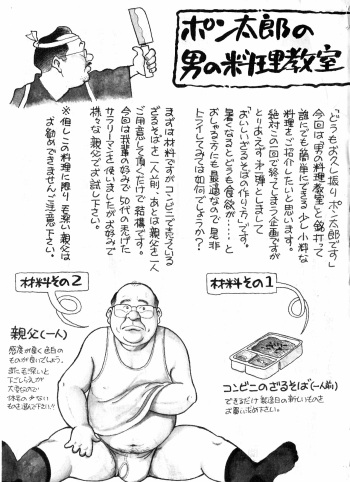 ポン太郎の
男の料理教室
「どうもお久し振りポン太郎です」
今回は「男の料理教室」と銘打って
誰にでも簡単にできる少し小粋な
料理をご紹介したいと思います。
絶対この一回で終ってしまう企画ですが
とりあえず第一弾としまして
「おいしいざるそばの作り方」です。
暑くなるとどうも食欲が……と
おっしゃる方にも最適なので是非
トライしてみては如何でしょうか?
まずは材料ですがコンビニで売っている
ざるそばを一人前、あとは親父を一人
ご用意して頂くだけで結構です。
今回は我輩の好みで50代のハゲた
サラリーマンを使いましたがお好みで
様々な親父でお試し下さい。
※但しこの料理に限り毛深い親父は
お勧めできませんのでご注意下さい。
材料その1
コンビニのざるそば(一人前)
できるだけ製造日の新しいものを
お買い求め下さい。
材料その2
親父(一人)
感度が良く色白の
ものが良いでしょう。
下ごしらえが
大変なので
体毛の少ない
ものを選んで下さい!!